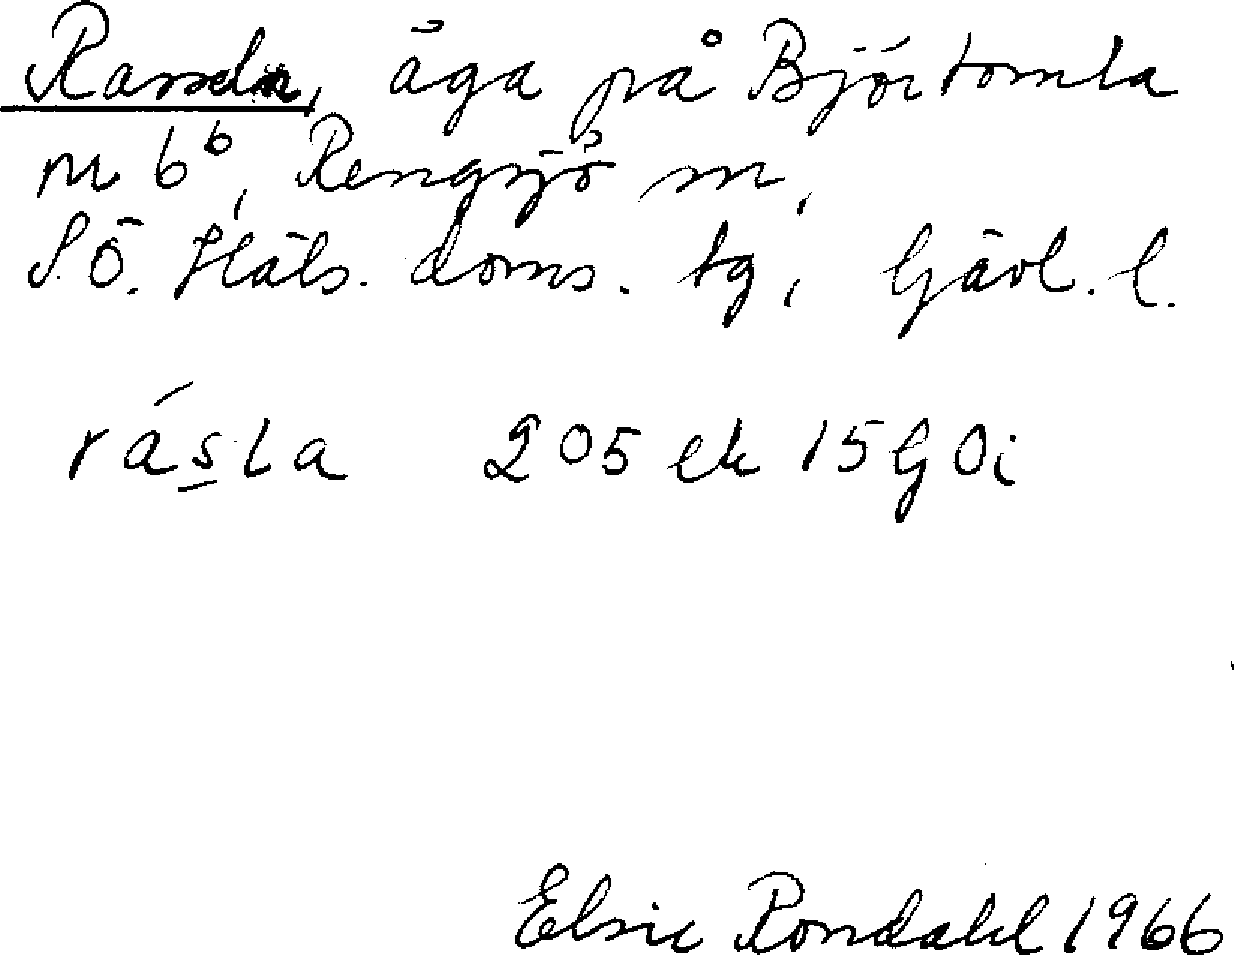 Rasseln, äga på Björtomta
nr 6ᵇ, Rengsjö sn,
S.Ö. Häls. doms. tg, Gävl. l.
rásta 205 ek 15G0i
Elsie Rondahl 1966